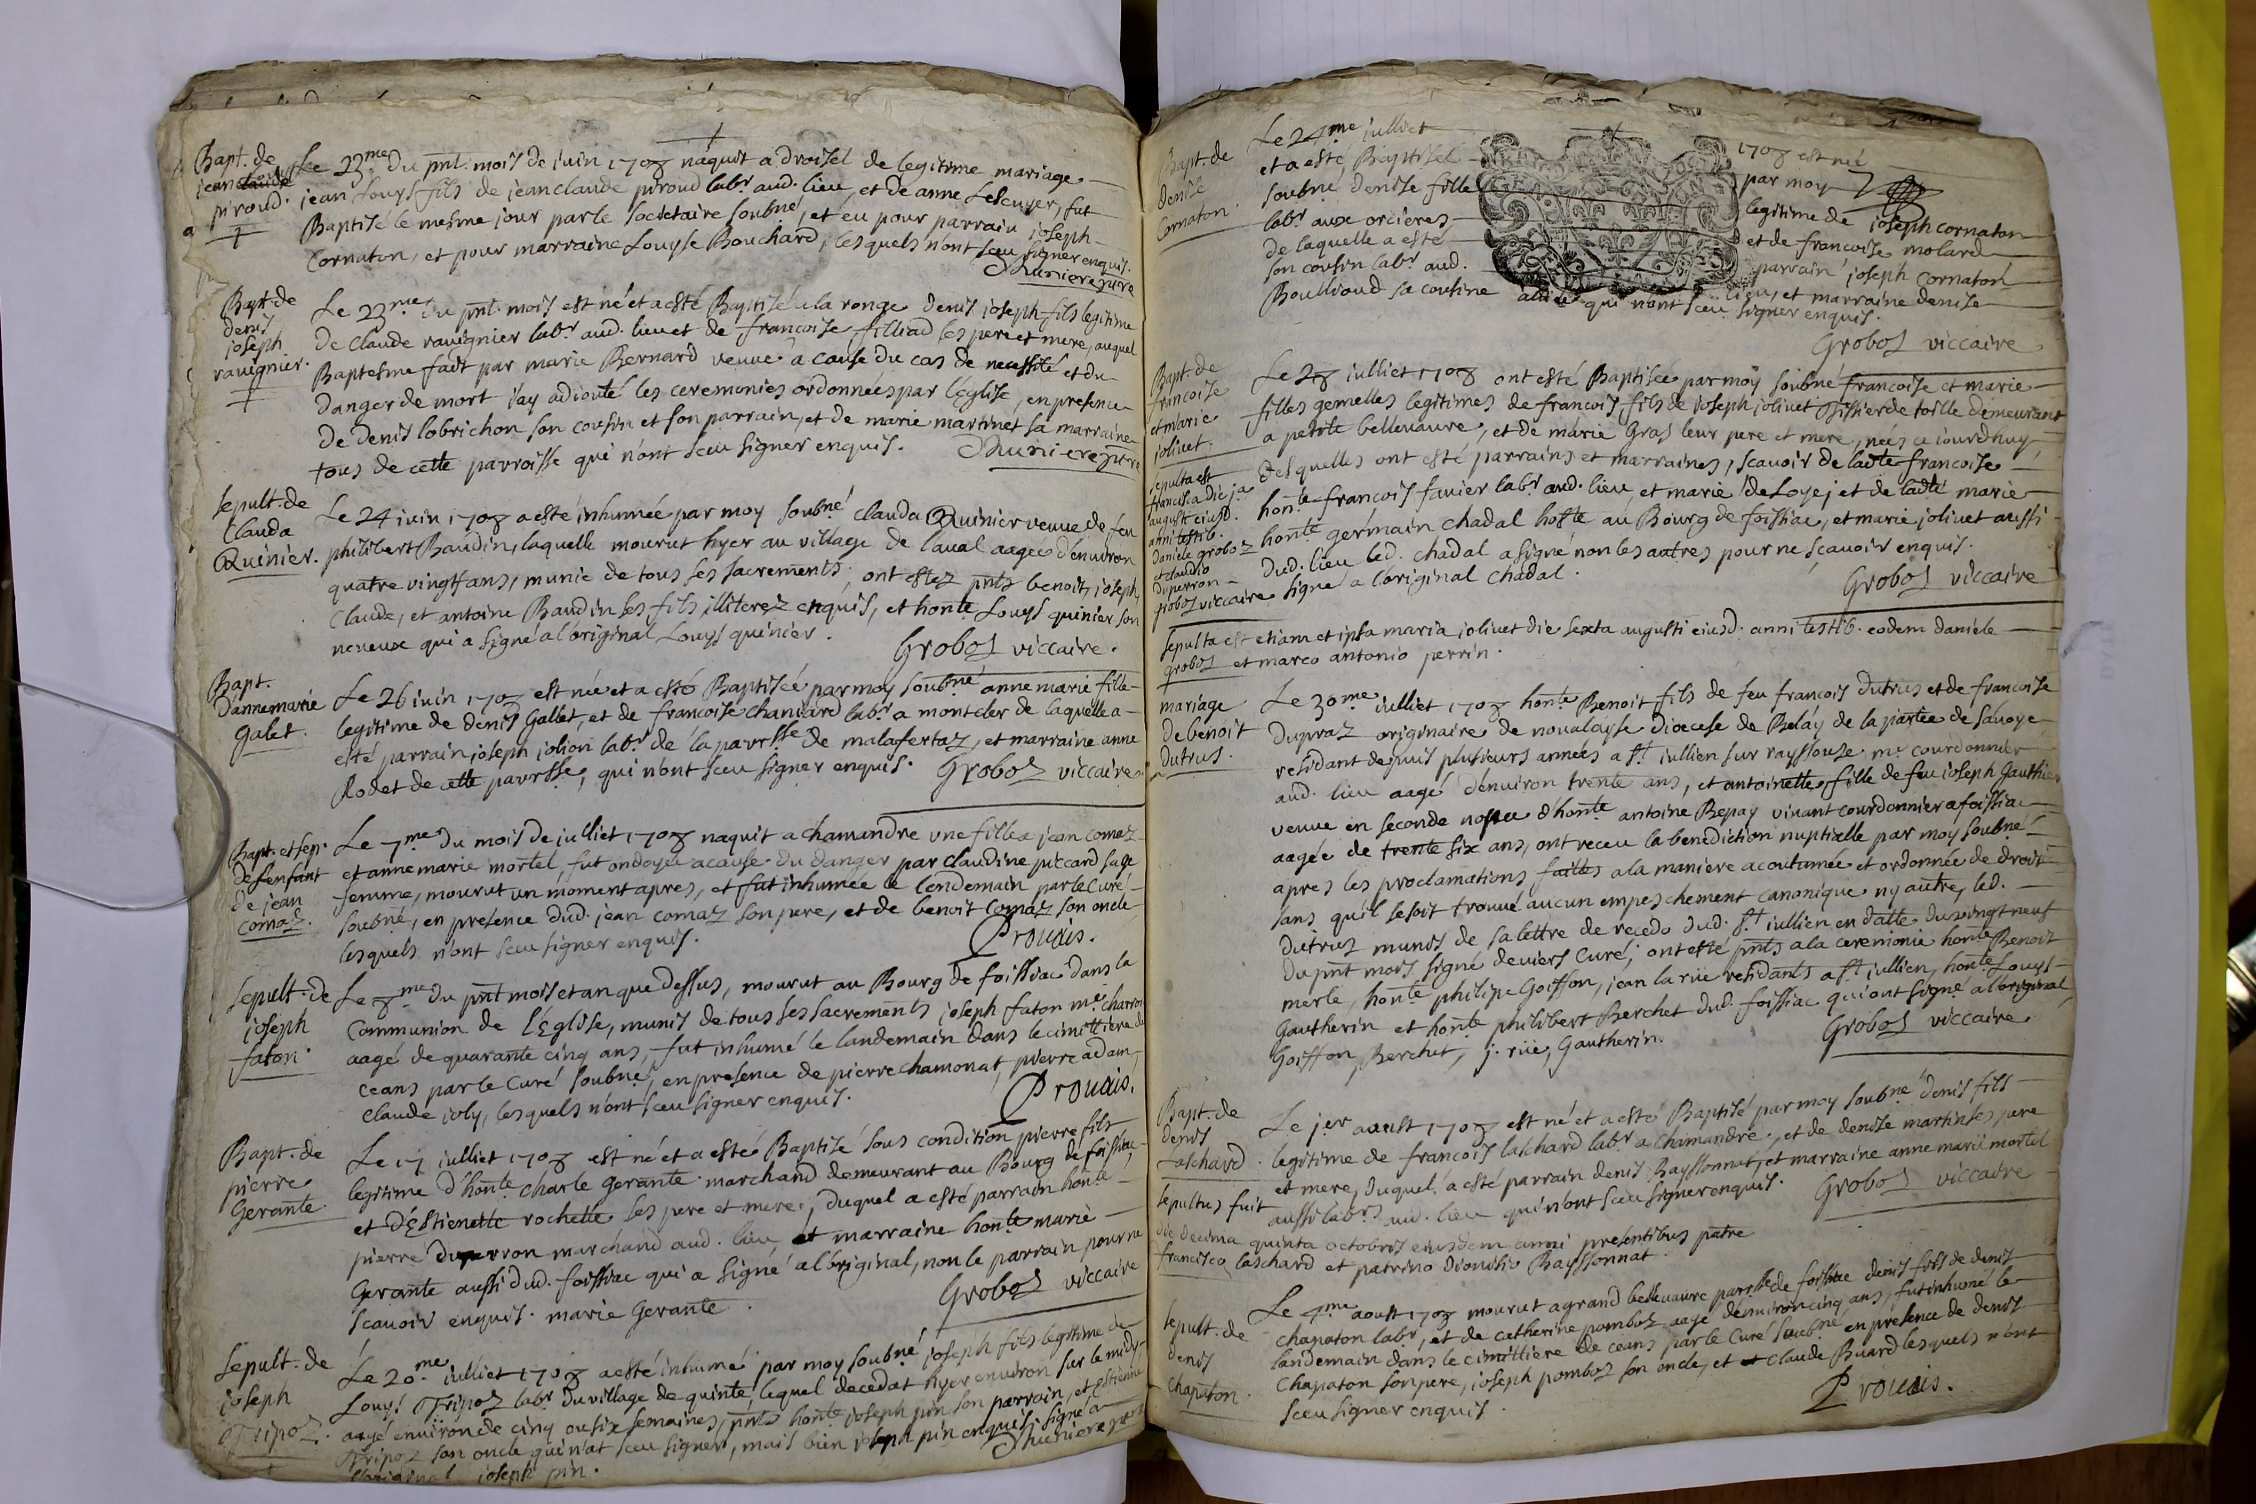 Bapt. de
jean claude
piroud.
Le 23.me du pnt. mois de iuin 1708 náquit a droisel de legitime mariage
jean Louys fils de jean claude piroud labr. aud. lieu, et de anne Lescuyer, fut
Baptisé le mesme jour par le societaire soubné, et eu pour parrain joseph
Cornaton, et pour marraine Louyse Bouchard, lesquels n'ont sceu signer enquis.
Bapt. de
denis
joseph
ravignier.
Le 23.me du pnt. mois est né et a esté Baptisé a la ronge denis joseph fils legitime
de claude ravignier labr. aud. lieu et de francoise filliad ses pere et mere, auquel
Baptesme fait par marie Bernard veuve a cause du cas de necessité et du
danger de mort i'ay adiouté les ceremonies ordonnées par l'Eglise, en presence
de denis lobrichon son cousin et son parrain, et de marie martinet sa marraine
tous de cette parroisse qui n'ont sceu signer enquis.
Sepult. de
Clauda
Quinier.
Le 24 iuin 1708 a esté inhumée par moy soubné clauda Quinier veuve de feu
philibert Baudin, laquelle mourut hyer au village de laval aagée d'environ
quatre vingt ans, munie de tous ses sacrements, ont estez pnts benoit, joseph,
Claude, et antoine Baudin ses fils illiterez enquis, et honte. Louys quinier son
neveux qui a signé a l'original Louys quinier.
Groboz viccaire.
Bapt.
D'anne marie
Galet.
Le 26 iuin 1708 est née et a esté Baptisée par moy soubné anne marie fille
legitime de denis Gallet, et de francoise chanard labr. a montcler de laquelle a
esté parrain joseph jolion labr. de la parrsse de malafertaz, et marraine anne
Rodet de cette parrsse, qui n'ont sceu signer enquis.
Groboz viccaire
Bapt. et sep.
de l'enfant
de jean
comaz.
Le 7.me du mois de julliet 1708 naquit a chamandre une fille a jean comaz
et anne marie mortel, fut ondoyée a cause du danger par claudine piccard sage
femme, mourut un moment apres, et fut inhumée le lendemain par le Curé
soubné, en presence dud. jean comaz son pere, et de benoit comaz son oncle
lesquels n'ont sceu signer enquis.
Prouais.
Sepult. de
joseph
faton.
Le 8.me du pnt mois et an que dessus, mourut au Bourg de foissiac dans la
Communion de l'Eglise, munis de tous ses sacrements joseph faton me. charron
aagé de quarante cinq ans, fut inhumé le landemain dans le cimittiere de
ceans par le Curé soubné, en presence de pierre chamonat, pierre adam,
Claude joly, lesquels n'ont sceu signer enquis.
Prouais.
Bapt. de
pierre
Gerante
Le 17 julliet 1708 est né et a esté Baptisé sous condition pierre fils
legitime d'honte. charle gerante marchand demeurant au Bourg de foissiac
et d'Estienette rochette ses pere et mere, duquel a esté parrain honte.
pierre Duperron marchand aud. lieu et marraine honte. marie
Gerante aussi dud. foissiac qui a signé a l'original, non le parrain pour ne
scavoir enquis. marie Gerante.
Groboz viccaire
Sepult. de
joseph
Tripoz.
Le 20.me julliet 1708 a esté inhumé par moy soubné joseph fils legitime de
Louys Tripoz labr. du village de quinte, lequel decedat hyer environ sur le midy
aagé environ de cinq ou six semaines, pnts honte. joseph pin son parrain, et estienne
Tripoz son oncle qui n'at sceu signer, mais bien joseph pin enquis signé a
l'original joseph pin.
Bapt. de
Denise
Cornaton.
Le 24.me julliet 1708 est né
et a esté Baptisé par moy
soubné denise fille legitime de joseph cornaton
labr. aux orcieres et de francoise molard
de laquelle a esté parrain joseph cornaton
son cousin labr. aud. lieu, et marraine denise
Boullioud sa cousine qui n'ont sceu signer enquis.
Groboz viccaire
Bapt. de
francoise
et marie
jolivet.
Le 28 julliet 1708 ont esté Baptisée par moy soubné francoise et marie
filles gemelles legitimes de francois, fils de joseph jolivet Tissier de toille demeurant
a petite bellevavre, et de marie Gras leur pere et mere, nées ce iourd'huy
desquelles ont esté parrains et marraines, scavoir de ladte francoise
honte. francois favier labr. aud. lieu, et marie deLoye; et de ladte marie
honte germain chadal hoste au Bourg de foissiac, et marie jolivet aussi
dud. lieu led. chadal a signé non les autres pour ne scavoir enquis.
signé a l'original chadal.
Groboz viccaire
sepulta est
francisca die ja
augusti eiusd.
anni testib.
Daniele groboz
et claudio
Duperron
groboz viccaire
Sepulta est etiam et ipsa maria jolivet die sexta augusti eiusd. anni testib. eodem daniele
groboz et marco antonio perrin.
mariage
de benoit
dutrus.
Le 30.me julliet 1708 honte Benoit fils de feu francois dutrus et de francoise
Dupraz originaire de novalayse diocese de Beláy de la partie de Savoye
residant depuis plusieurs années a st. jullien sur rayssouze me. courdonnier
aud. lieu aagé d'environ trente ans, et antoinette fille de feu joseph Gauthier
veuve en seconde nopce d'honte antoine Repay vivant courdonnier a foissiac
aagée de trente six ans, ont receu la benediction nuptialle par moy soubné
apres les proclamations faittes a la maniere acoutumée et ordonnée de droit
sans qu'il se soit trouvé aucun empeschement canonique ny autre, led.
dutruz munis de sa lettre de recedo dud. st. jullien en datte du vingt neuf
du pnt mois signé deviers Curé; ont esté pnts a la ceremonie honte Benoit
merle, honte philipe Goiffon, jean la rüe residants a st jullien, honte Louys
Gautherin et honte philibert Berchet dud. foissiac qui ont signé a l'original
Goiffon, Berchet, j. rüe, Gautherin.
Groboz viccaire
Bapt. de
denis
Laschard.
Le jer aoust 1708 est né et a esté Baptisé par moy soubné denis fils
legitime de francois laschard labr a chamandre, et de denise martin ses pere
et mere, duquel a esté parrain denis Rayssonnat, et marraine anne marie mortel
aussi labrs aud. lieu qui n'ont sceu signer enquis.
Groboz viccaire
Sepultus fuit
die decima quinta octobris eiusdem anni presentibus patre
francisco laschard et patrino dionisio Rayssonnat.
Sepult. de
denis
Chapaton.
Le 4.me aoust 1708 mourut a grand bellevavre parrsse de foissiac denis fils de denis
chapaton labr, et de catherine pomboz aagé d'environ cinq ans, fut inhumé le
landemain dans le cimittiere de ceans par le Curé soubné en presence de denis
Chapaton son pere, joseph pomboz son oncle, et claude Buard lesquels n'ont
sceu signer enquis.
Prouais.